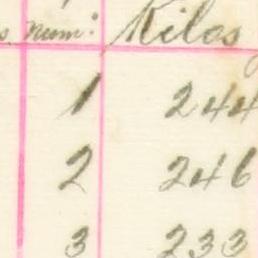 s num: Kilos
1 244
2 246
3 233